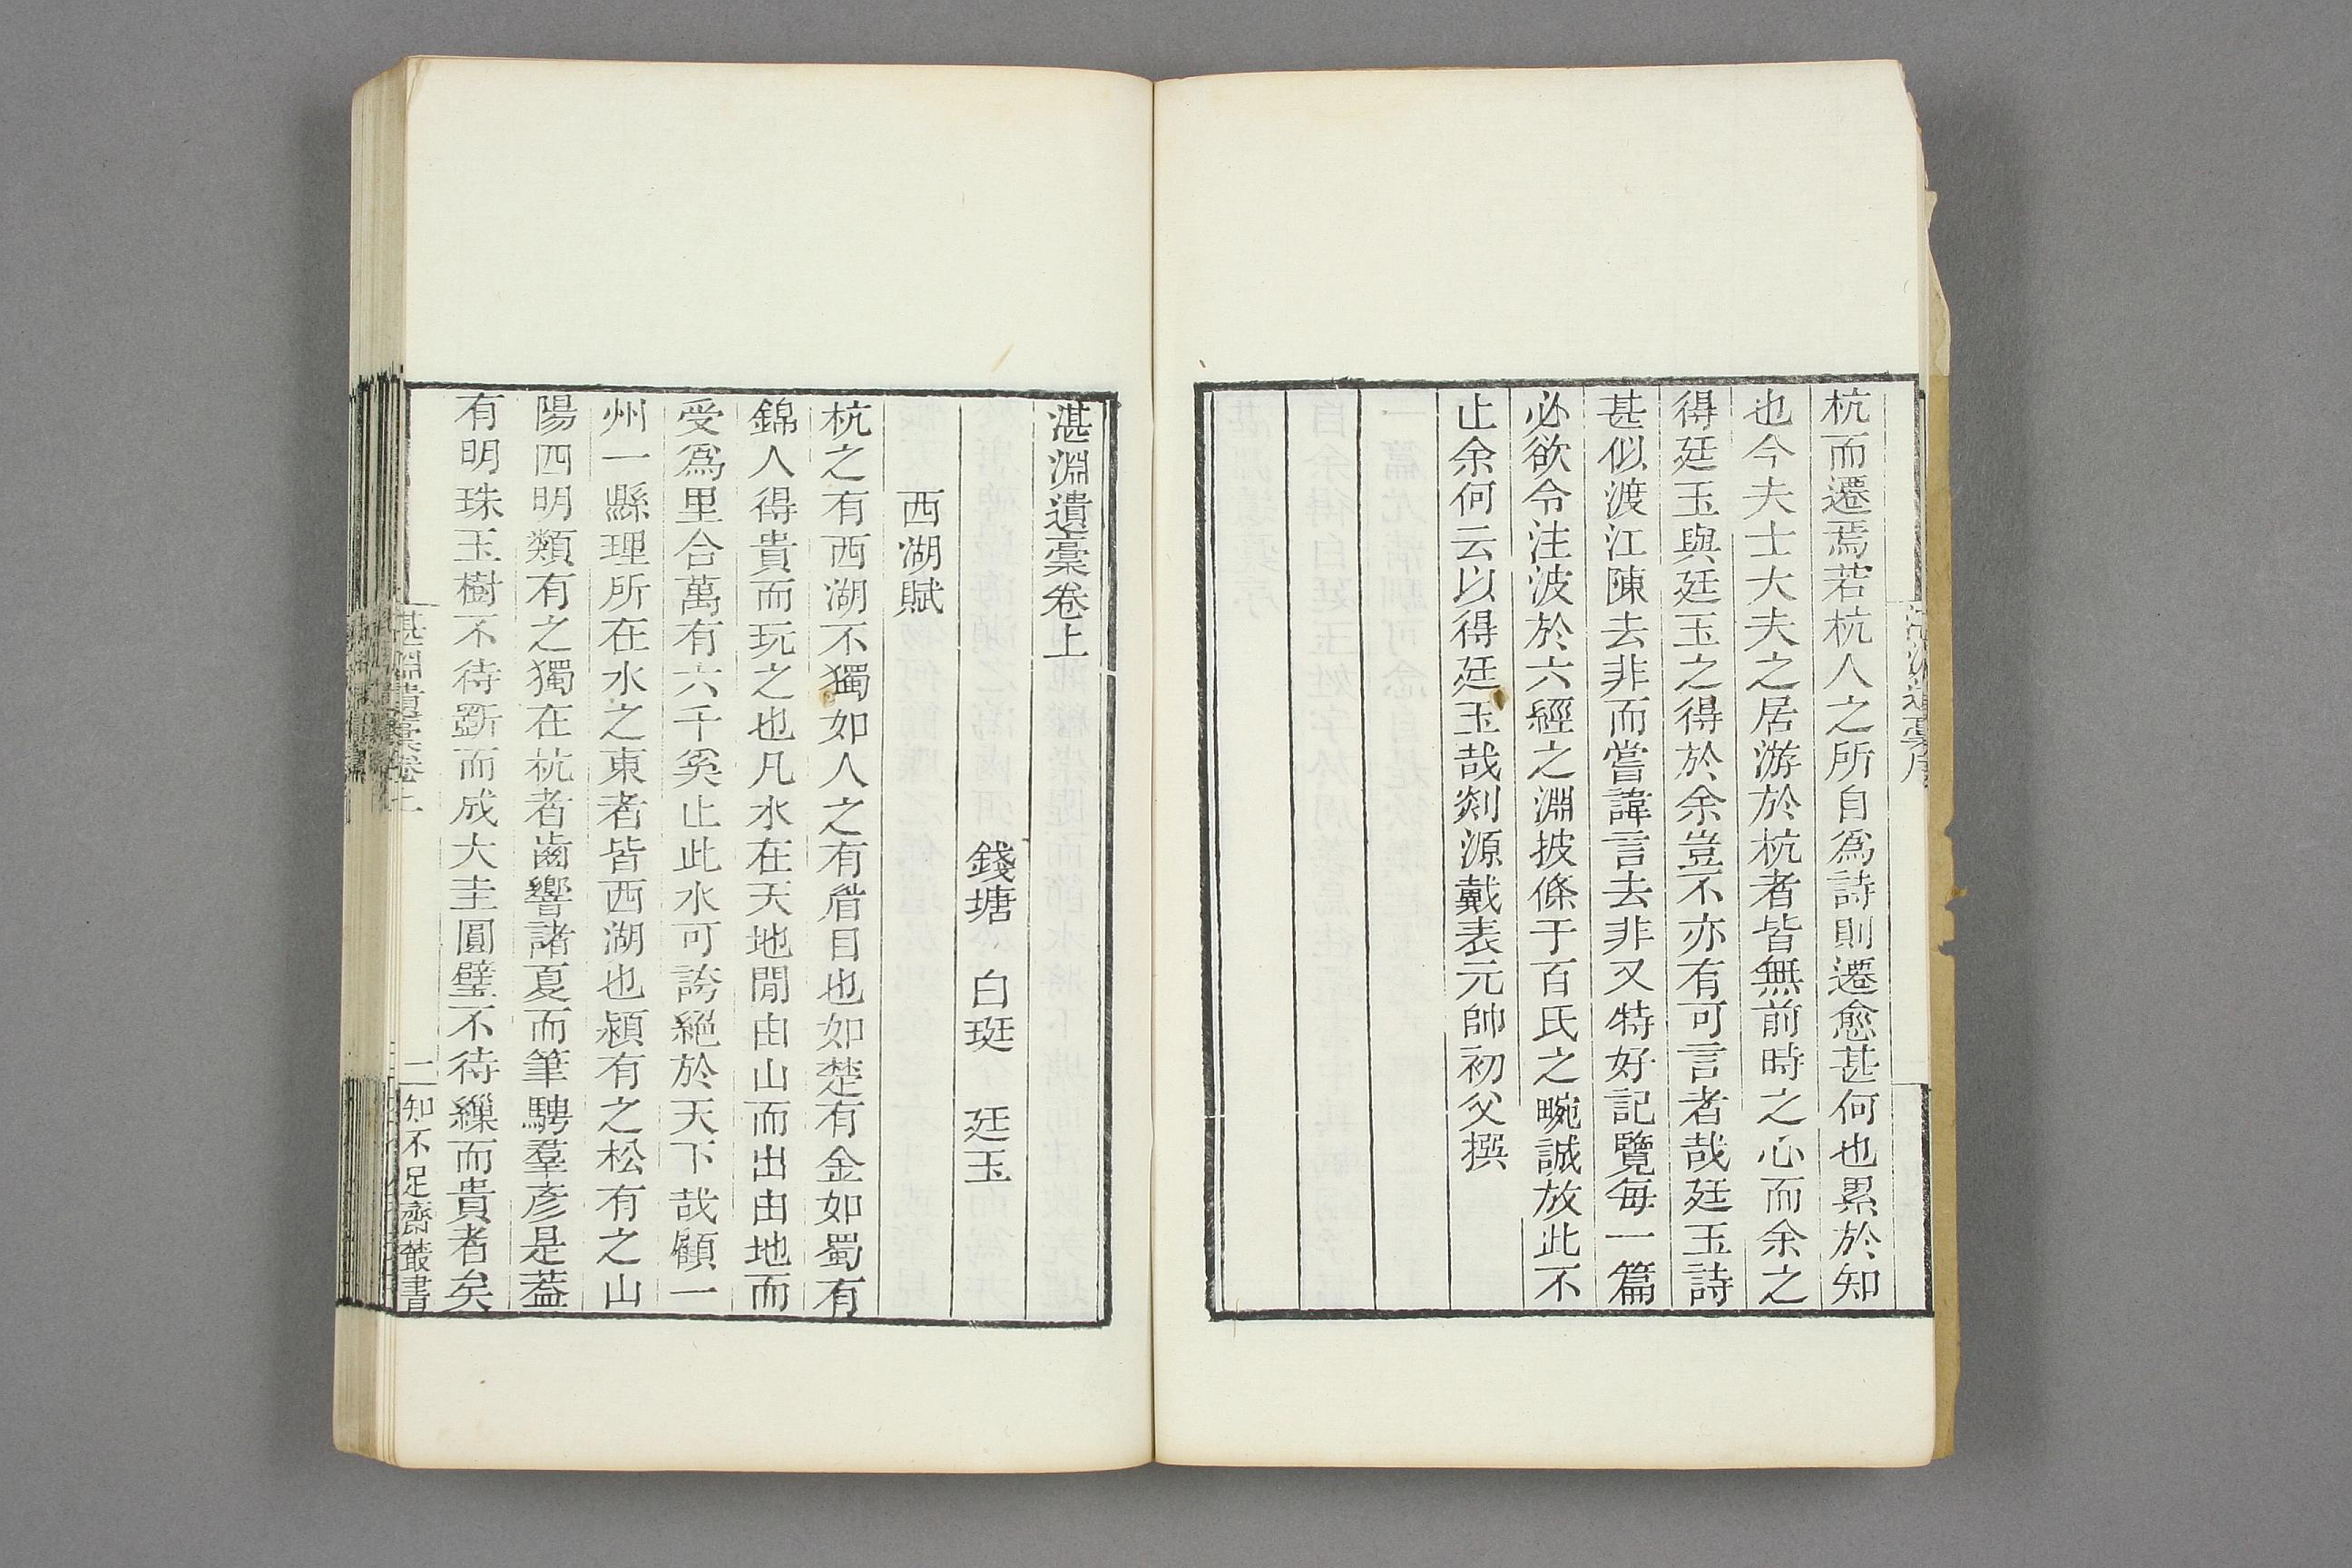 杭而遷焉若杭人之所自爲詩則遷愈甚何也累於知
也今夫士大夫之居游於杭者皆無前時之心而余之
得廷玉與廷玉之得於余豈不亦有可言者哉廷玉詩
甚似渡江陳去非而嘗諱言去非又特好記覽每一篇
必欲令注波於六經之淵披條于百氏之畹誠放此不
止余何云以得廷玉哉剡源戴表元帥初父撰
湛淵遺稾卷上
錢塘 白珽 廷玉
西湖賦
杭之有西湖不獨如人之有眉目也如楚有金如蜀有
錦人得貴而玩之也凡水在天地閒由山而出由地而
受爲里合萬有六千奚止此水可誇絕於天下哉顧一
州一縣理所在水之東者皆西湖也潁有之松有之山
陽四明類有之獨在杭者齒響諸夏而筆騁羣彥是葢
有明珠玉樹不待斲而成大圭圓璧不待繅而貴者矣
二 知不足齋叢書